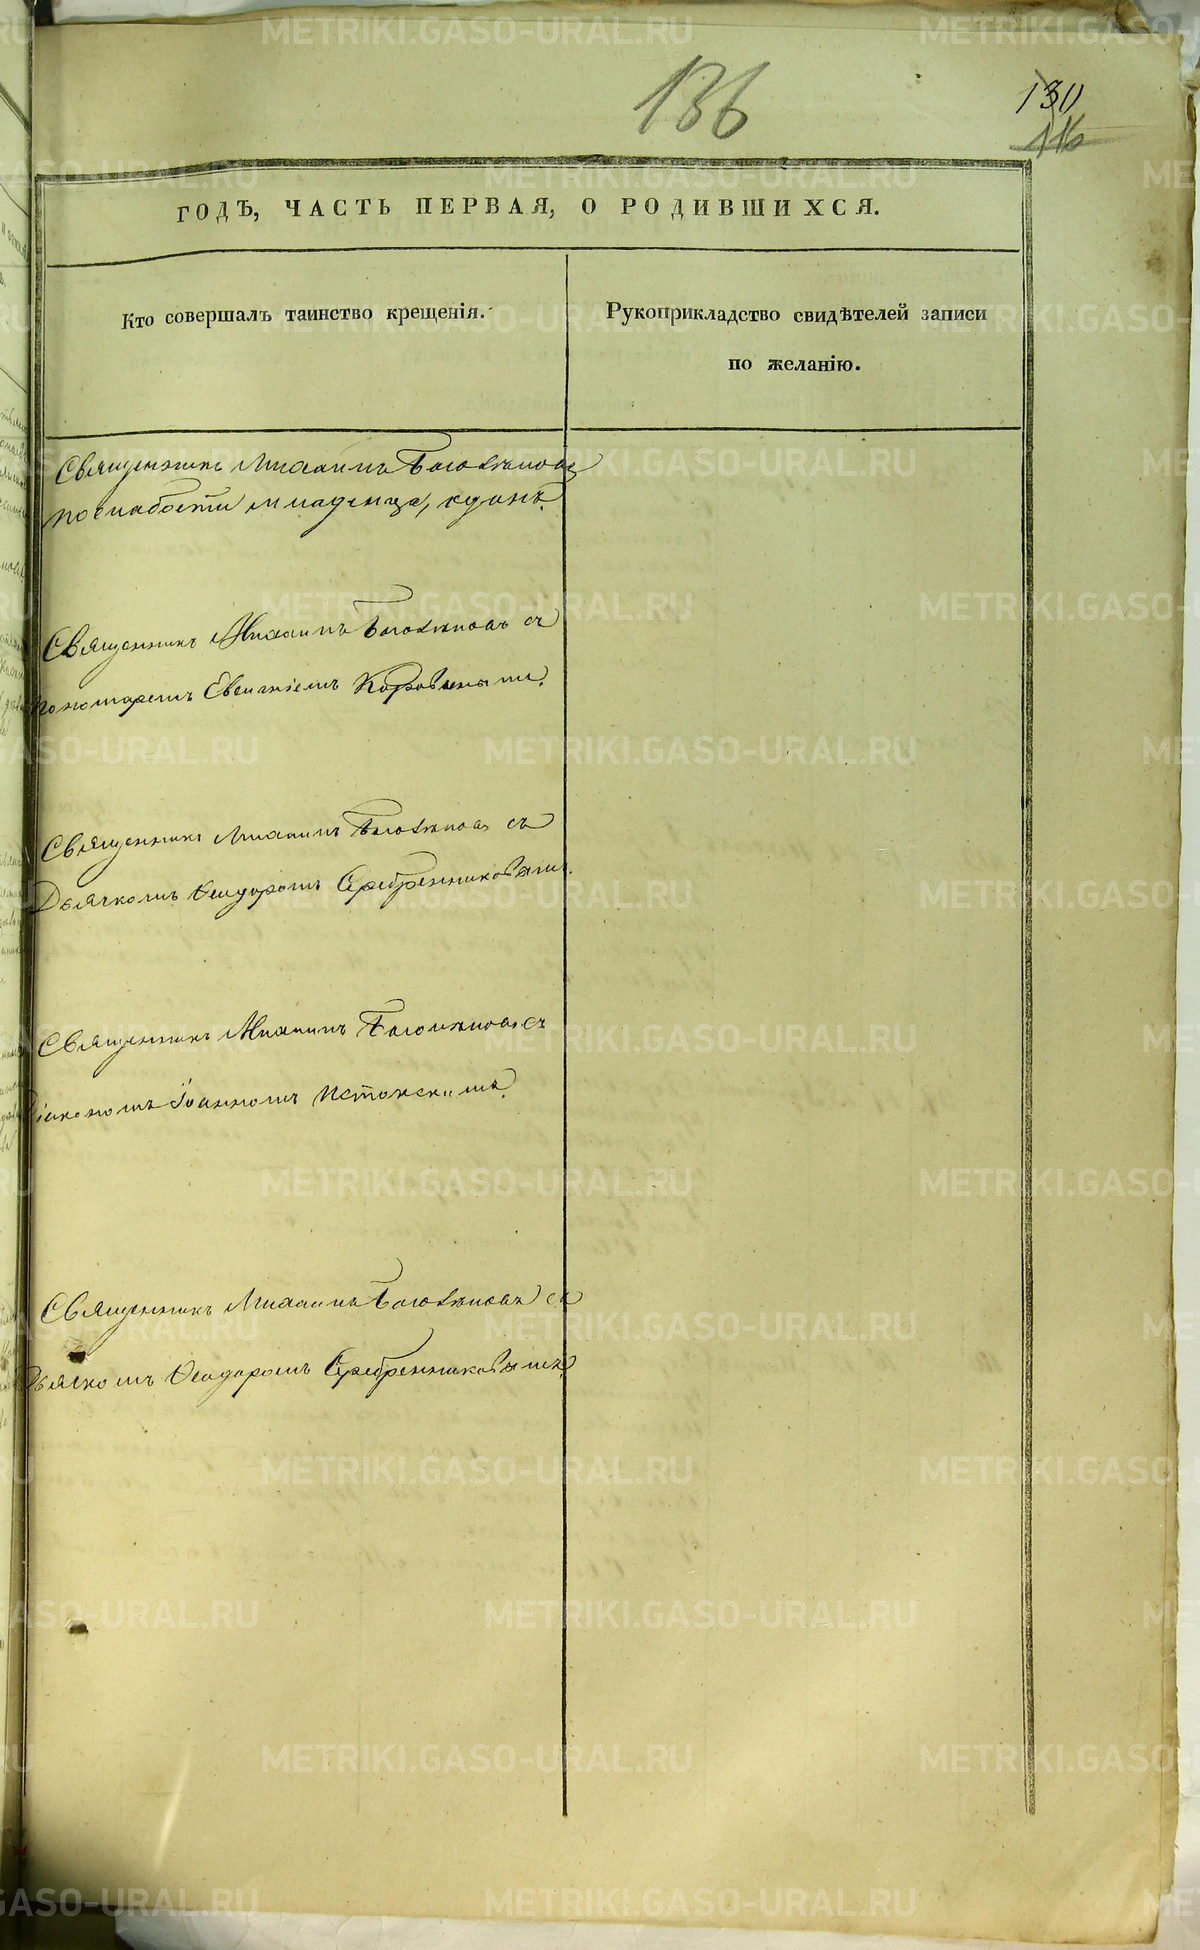 136
130
116
ГОДЪ, ЧАСТЬ ПЕРВАЯ, О РОДИВШИХСЯ.
Кто совершалъ таинство крещенія.
Рукоприкладство свидѣтелей записи
по желанію.
Священникъ Михаилъ Боголѣповъ
по слабости младенца, единъ.
Священникъ Михаилъ Боголѣповъ съ
пономаремъ Евгеніемъ Коровинымъ.
Священникъ Михаилъ Боголѣповъ съ
Дьячкомъ Ѳеодоромъ Серебренниковымъ.
Священникъ Михаилъ Боголѣповъ съ
Діакономъ Іоанномъ Истокскимъ.
Священникъ Михаилъ Боголѣповъ съ
Дьячкомъ Ѳеодоромъ Серебренниковымъ.
METRIKI.GASO-URAL.RU